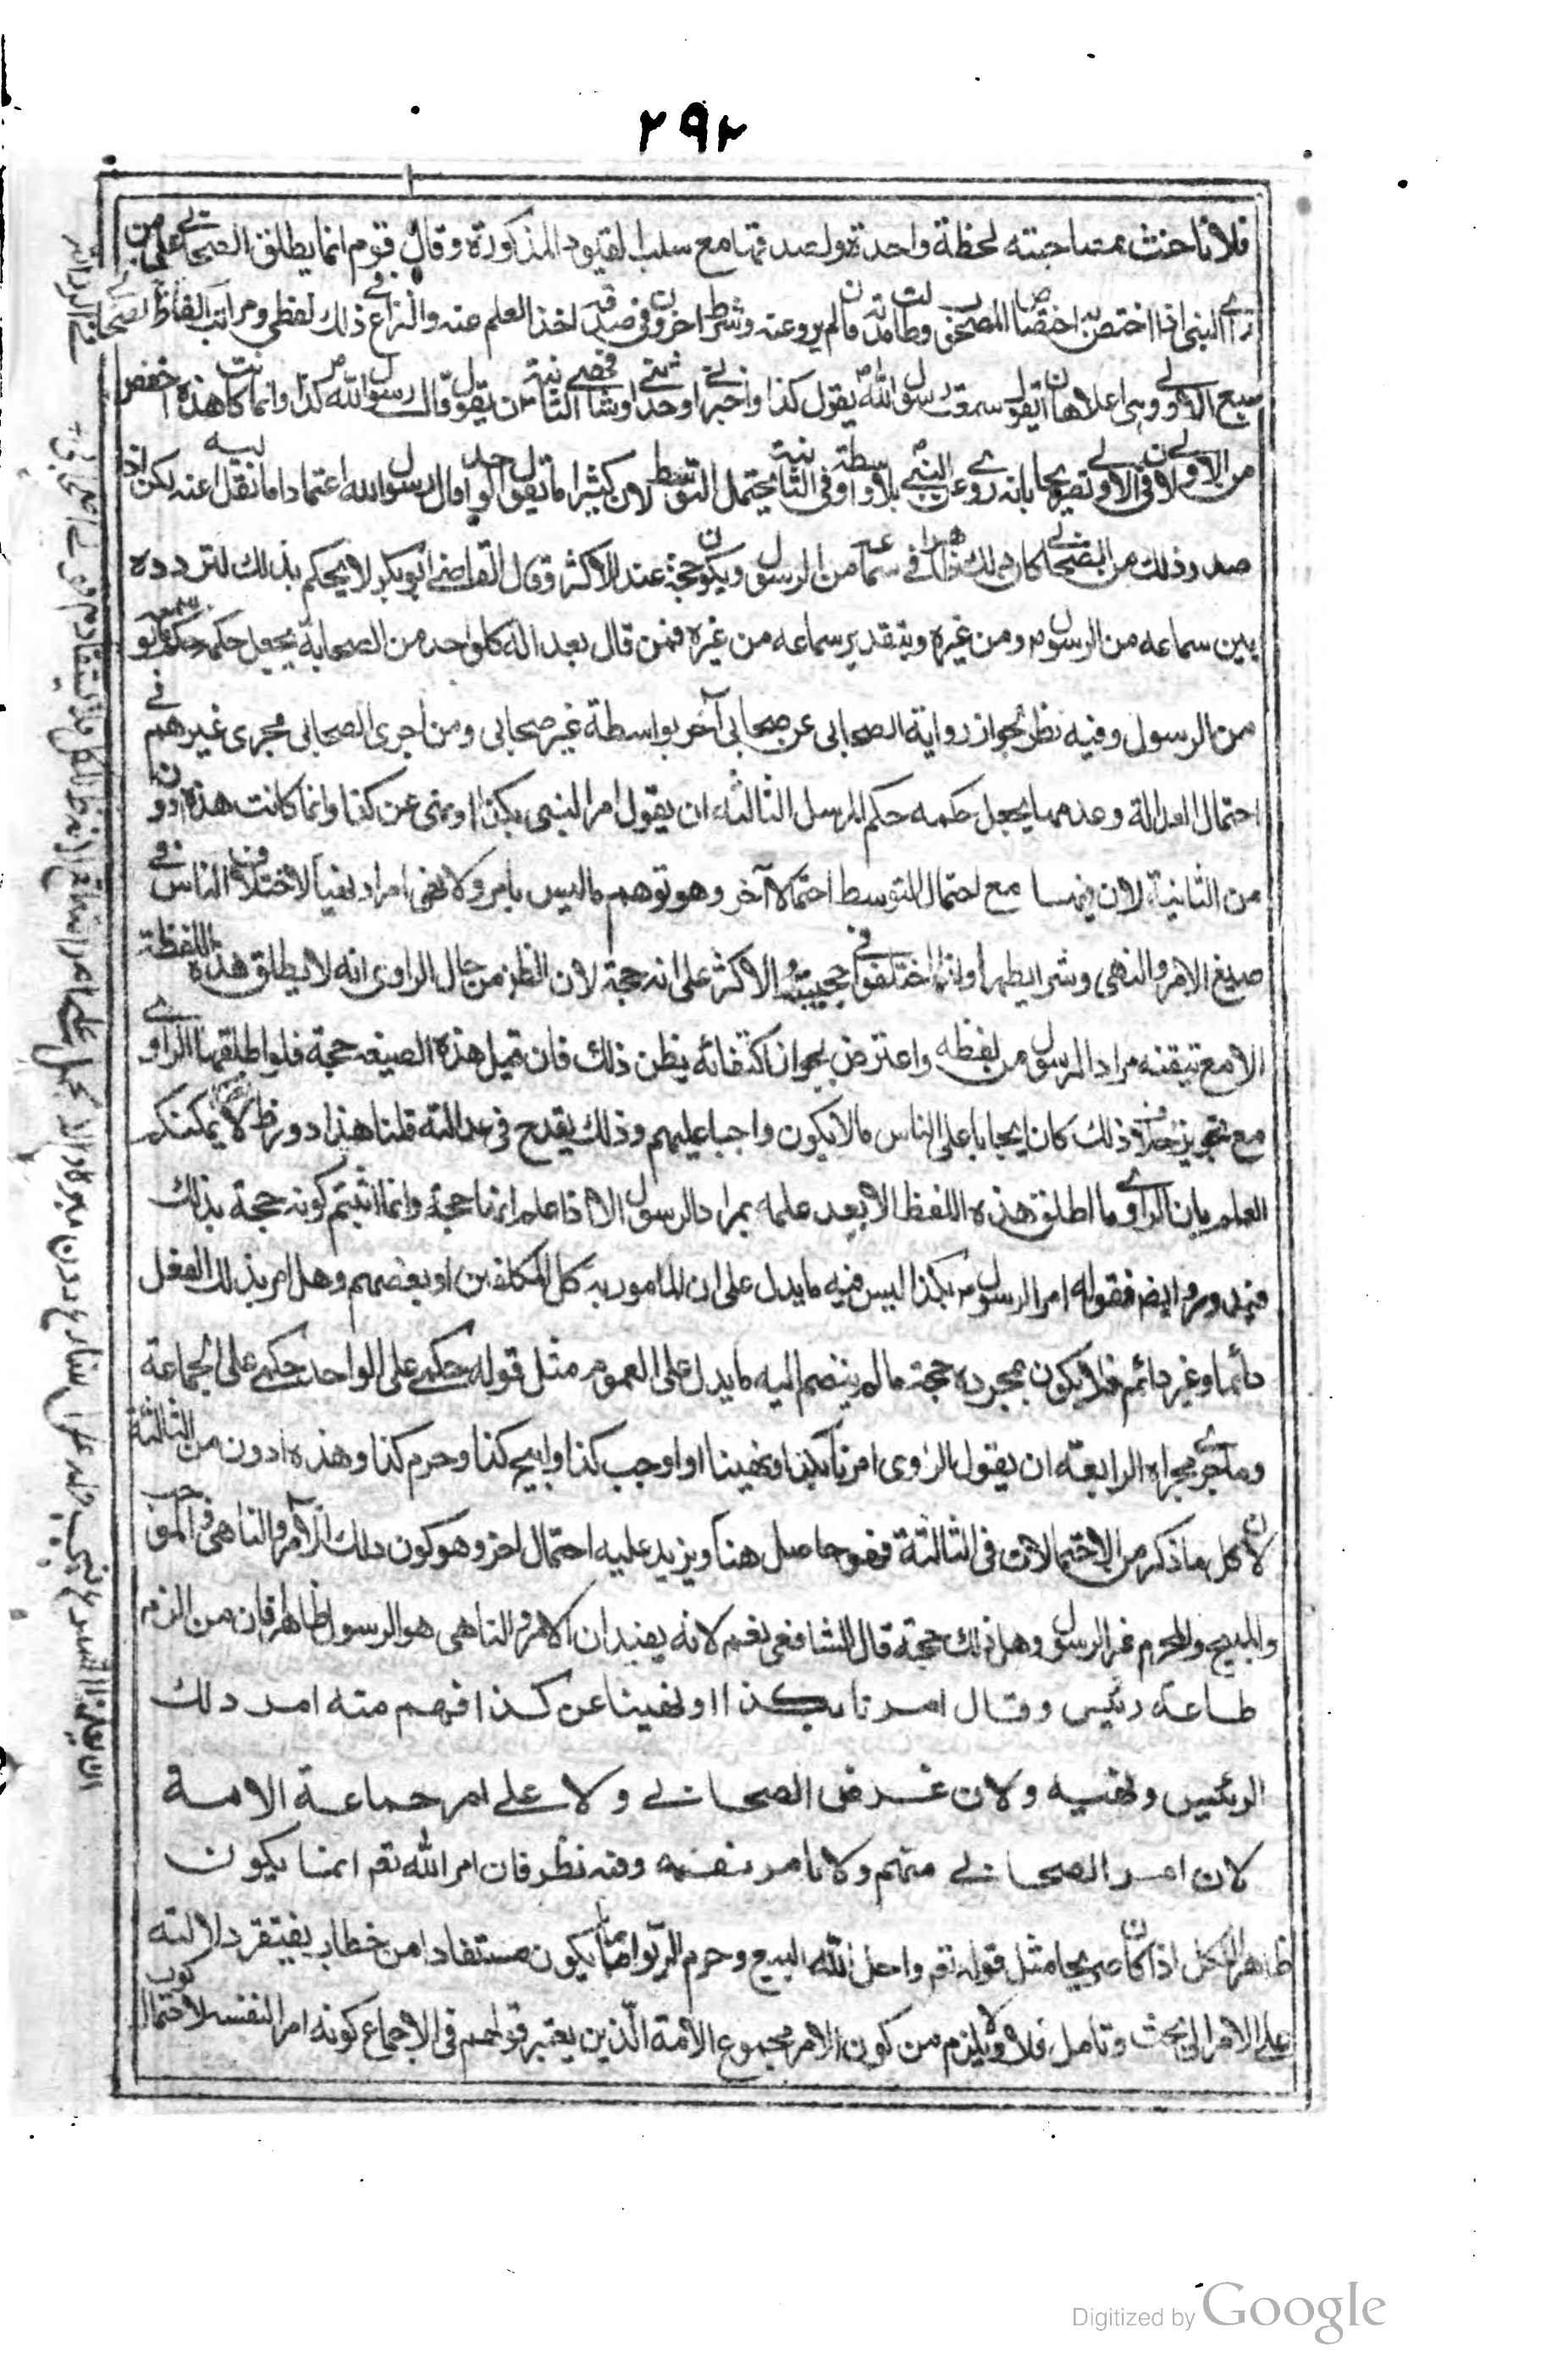 ٢٩٢
فلانا حنث بمصاحبته لحظة واحدة ولصدقها مع سلب القيود المذكورة وقال قوم انما يطلق الصحابي على من
راى النبي اذا اختص به اختصاص المصحوب وطالت مدته وان لم يرو عنه وشرط اخرون في صدقه اخذ العلم عنه والنزاع في ذلك لفظي ومراتب الفاظ الصحابي
سبع الاولى وهي اعلاها ان يقول سمعت رسول الله ص يقول كذا واخبرني او حدثني او شافهني الثانية ان يقول قال رسول الله ص كذا وانما كانت هذه اخفض
من الاولى لان في الاولى تصريحا بانه روى عن النبي ص بلا واسطة وفي الثانية يحتمل التوسط لان كثيرا ما يقول الواحد قال رسول الله اعتمادا ما نقل اليه عنه لكن اذا
صدر ذلك من الصحابي كان ذلك ظاهرا في سماعه من الرسول ويكون حجة عند الاكثر وقال القاضي ابو بكر لا يحكم بذلك لتردده
بين سماعه من الرسول ومن غيره وبتقدير سماعه من غيره فمن قال بعدالة كل واحد من الصحابة يجعل حكمه حكم ما لو سمعه
من الرسول وفيه نظر لجواز رواية الصحابي عن صحابي آخر بواسطة غير صحابي ومن اجرى الصحابي مجرى غيرهم في
احتمال العدالة وعدمها يجعل حكمه حكم المرسل الثالثة ان يقول امر النبي بكذا او نهى عن كذا وانما كانت هذه ادون
من الثانية لان فيها مع احتمال التوسط احتمالا آخر وهو توهم ما ليس بامر ولا نهي امرا ونهيا لاختلاف الناس في
صيغ الامر والنهي وشرايطهما ولذا اختلفوا في حجيته والاكثر على انه حجة لان الظن من حال الراوي انه لا يطلق هذه اللفظة
الا مع تيقنه مراد الرسول من لفظه واعترض بجواز اكتفائه بظن ذلك فان قيل هذه الصيغة حجة فلو اطلقها الراوي
مع تجويز خلاف ذلك كان ايجابا على الناس ما لا يكون واجبا عليهم وذلك يقدح في عدالته قلنا هذا دور ظاهر لا يمكنكم
العلم بان الراوي ما اطلق هذه اللفظ الا بعد علمه بمراد الرسول الا اذا علم انها حجة وانما اثبتم كونه حجة بذلك
فيدور وايضا فقوله امر الرسول بكذا ليس فيه ما يدل على ان المامور به كل المكلفين او بعضهم وهل امر بذلك الفعل
دائما او غير دائم فلا يكون بمجرده حجة ما لم ينضم اليه ما يدل على العموم مثل قوله حكمي على الواحد حكمي على الجماعة
وما جرى مجراه الرابعة ان يقول الراوي امرنا بكذا او نهينا او اوجب كذا وابيح كذا وحرم كذا وهذه ادون من الثالثة
لان كل ما ذكر من الاحتمالات في الثالثة فهو حاصل هنا ويزيد عليه احتمال اخر وهو كون ذلك الآمر والناهي والموجب
والمبيح والمحرم غير الرسول وهل ذلك حجة قال الشافعي نعم لانه يفيد ان الآمر والناهي هو الرسول ظاهرا فان من الزم
طاعة رئيس وقال امرنا بكذا او نهينا عن كذا فهم منه امر ذلك
الرئيس ونهيه ولان غرض الصحابي ولا على امر جماعة الامة
لان امر الصحابي منهم ولا يامر نفسه وفيه نظر فان امر الله تعم انما يكون
ظاهرا للكل اذا كان صريحا مثل قوله تعم واحل الله البيع وحرم الربوا اما ما يكون مستفادا من خطاب يفتقر دلالته
على الامر الى بحث وتامل فلا ولا يلزم من كون الامر مجموع الامة الذين يعتبر قولهم في الاجماع كونه امرا لنفسه لاحتمال كون
Digitized by Google